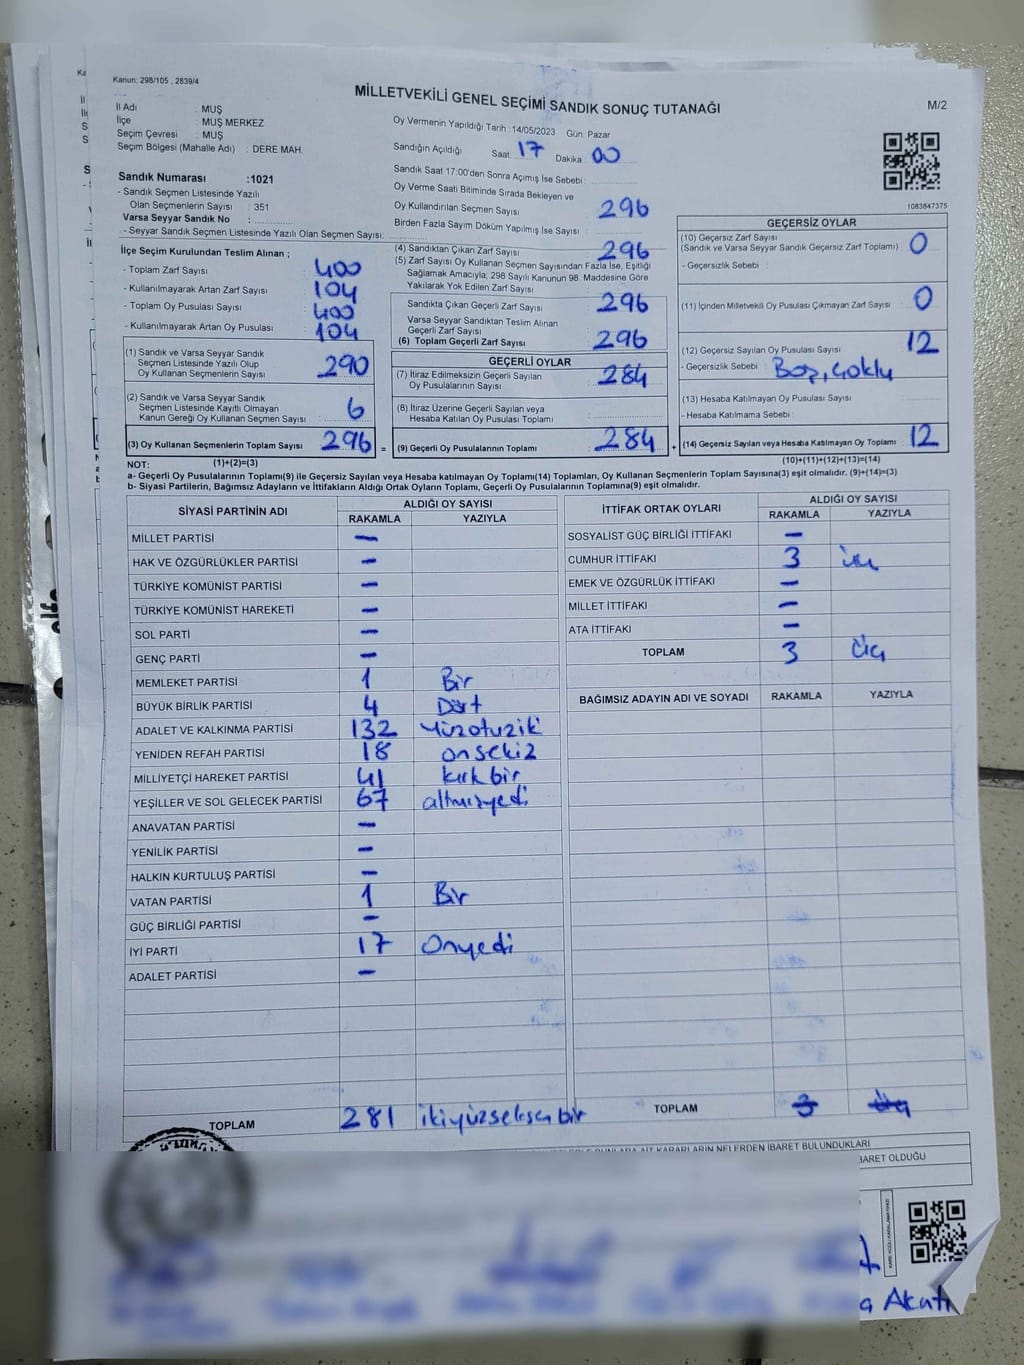 Kanun: 298/105 , 2839/4
MİLLETVEKİLİ GENEL SEÇİMİ SANDIK SONUÇ TUTANAĞI
M/2
İl Adı : MUŞ
İlçe : MUŞ MERKEZ
Seçim Çevresi : MUŞ
Seçim Bölgesi (Mahalle Adı) : DERE MAH.
Sandık Numarası :1021
- Sandık Seçmen Listesinde Yazılı
Olan Seçmenlerin Sayısı : 351
Varsa Seyyar Sandık No :
- Seyyar Sandık Seçmen Listesinde Yazılı Olan Seçmen Sayısı:
Oy Vermenin Yapıldığı Tarih : 14/05/2023 Gün: Pazar
Sandığın Açıldığı Saat: 17 Dakika: 00
Sandık Saat 17:00'den Sonra Açımış İse Sebebi :
Oy Verme Saati Bitiminde Sırada Bekleyen ve
Oy Kullandırılan Seçmen Sayısı 296
Birden Fazla Sayım Döküm Yapılmış İse Sayısı :
1083847375
İlçe Seçim Kurulundan Teslim Alınan ;
- Toplam Zarf Sayısı : 400
- Kullanılmayarak Artan Zarf Sayısı : 104
- Toplam Oy Pusulası Sayısı : 400
- Kullanılmayarak Artan Oy Pusulası : 104
(1) Sandık ve Varsa Seyyar Sandık
Seçmen Listesinde Yazılı Olup
Oy Kullanan Seçmenlerin Sayısı : 290
(2) Sandık ve Varsa Seyyar Sandık
Seçmen Listesinde Kayıtlı Olmayan
Kanun Gereği Oy Kullanan Seçmen Sayısı : 6
(3) Oy Kullanan Seçmenlerin Toplam Sayısı : 296 =
(4) Sandıktan Çıkan Zarf Sayısı : 296
(5) Zarf Sayısı Oy Kullanan Seçmen Sayısından Fazla İse, Eşitliği
Sağlamak Amacıyla; 298 Sayılı Kanunun 98. Maddesine Göre
Yakılarak Yok Edilen Zarf Sayısı :
Sandıkta Çıkan Geçerli Zarf Sayısı : 296
Varsa Seyyar Sandıktan Teslim Alınan
Geçerli Zarf Sayısı
(6) Toplam Geçerli Zarf Sayısı : 296
GEÇERLİ OYLAR
(7) İtiraz Edilmeksizin Geçerli Sayılan
Oy Pusulalarının Sayısı : 284
(8) İtiraz Üzerine Geçerli Sayılan veya
Hesaba Katılan Oy Pusulası Toplamı :
(9) Geçerli Oy Pusulalarının Toplamı : 284 +
GEÇERSİZ OYLAR
(10) Geçersiz Zarf Sayısı
(Sandık ve Varsa Seyyar Sandık Geçersiz Zarf Toplamı) : 0
- Geçersizlik Sebebi :
(11) İçinden Milletvekili Oy Pusulası Çıkmayan Zarf Sayısı : 0
(12) Geçersiz Sayılan Oy Pusulası Sayısı : 12
- Geçersizlik Sebebi : Boş, çoklu
(13) Hesaba Katılmayan Oy Pusulası Sayısı :
- Hesaba Katılmama Sebebi :
(14) Geçersiz Sayılan veya Hesaba Katılmayan Oy Toplamı : 12
NOT: (1)+(2)=(3) (10)+(11)+(12)+(13)=(14)
a- Geçerli Oy Pusulalarının Toplamı(9) ile Geçersiz Sayılan veya Hesaba katılmayan Oy Toplamı(14) Toplamları, Oy Kullanan Seçmenlerin Toplam Sayısına(3) eşit olmalıdır. (9)+(14)=(3)
b- Siyasi Partilerin, Bağımsız Adayların ve İttifakların Aldığı Ortak Oyların Toplamı, Geçerli Oy Pusulalarının Toplamına(9) eşit olmalıdır.
SİYASİ PARTİNİN ADI ALDIĞI OY SAYISI
RAKAMLA YAZIYLA
MİLLET PARTİSİ -
HAK VE ÖZGÜRLÜKLER PARTİSİ -
TÜRKİYE KOMÜNİST PARTİSİ -
TÜRKİYE KOMÜNİST HAREKETİ -
SOL PARTİ -
GENÇ PARTİ -
MEMLEKET PARTİSİ 1 Bir
BÜYÜK BİRLİK PARTİSİ 4 Dört
ADALET VE KALKINMA PARTİSİ 132 Yüzotuziki
YENİDEN REFAH PARTİSİ 18 onsekiz
MİLLİYETÇİ HAREKET PARTİSİ 41 kırk bir
YEŞİLLER VE SOL GELECEK PARTİSİ 67 altmışyedi
ANAVATAN PARTİSİ -
YENİLİK PARTİSİ -
HALKIN KURTULUŞ PARTİSİ -
VATAN PARTİSİ 1 Bir
GÜÇ BİRLİĞİ PARTİSİ -
İYİ PARTİ 17 Onyedi
ADALET PARTİSİ -
TOPLAM 281 ikiyüzseksen bir
İTTİFAK ORTAK OYLARI ALDIĞI OY SAYISI
RAKAMLA YAZIYLA
SOSYALİST GÜÇ BİRLİĞİ İTTİFAKI -
CUMHUR İTTİFAKI 3 üç
EMEK VE ÖZGÜRLÜK İTTİFAKI -
MİLLET İTTİFAKI -
ATA İTTİFAKI -
TOPLAM 3 üç
BAĞIMSIZ ADAYIN ADI VE SOYADI RAKAMLA YAZIYLA
TOPLAM 3 üç
KARARLARIN NELERDEN İBARET BULUNDUKLARI
BARET OLDUĞU
Akatı